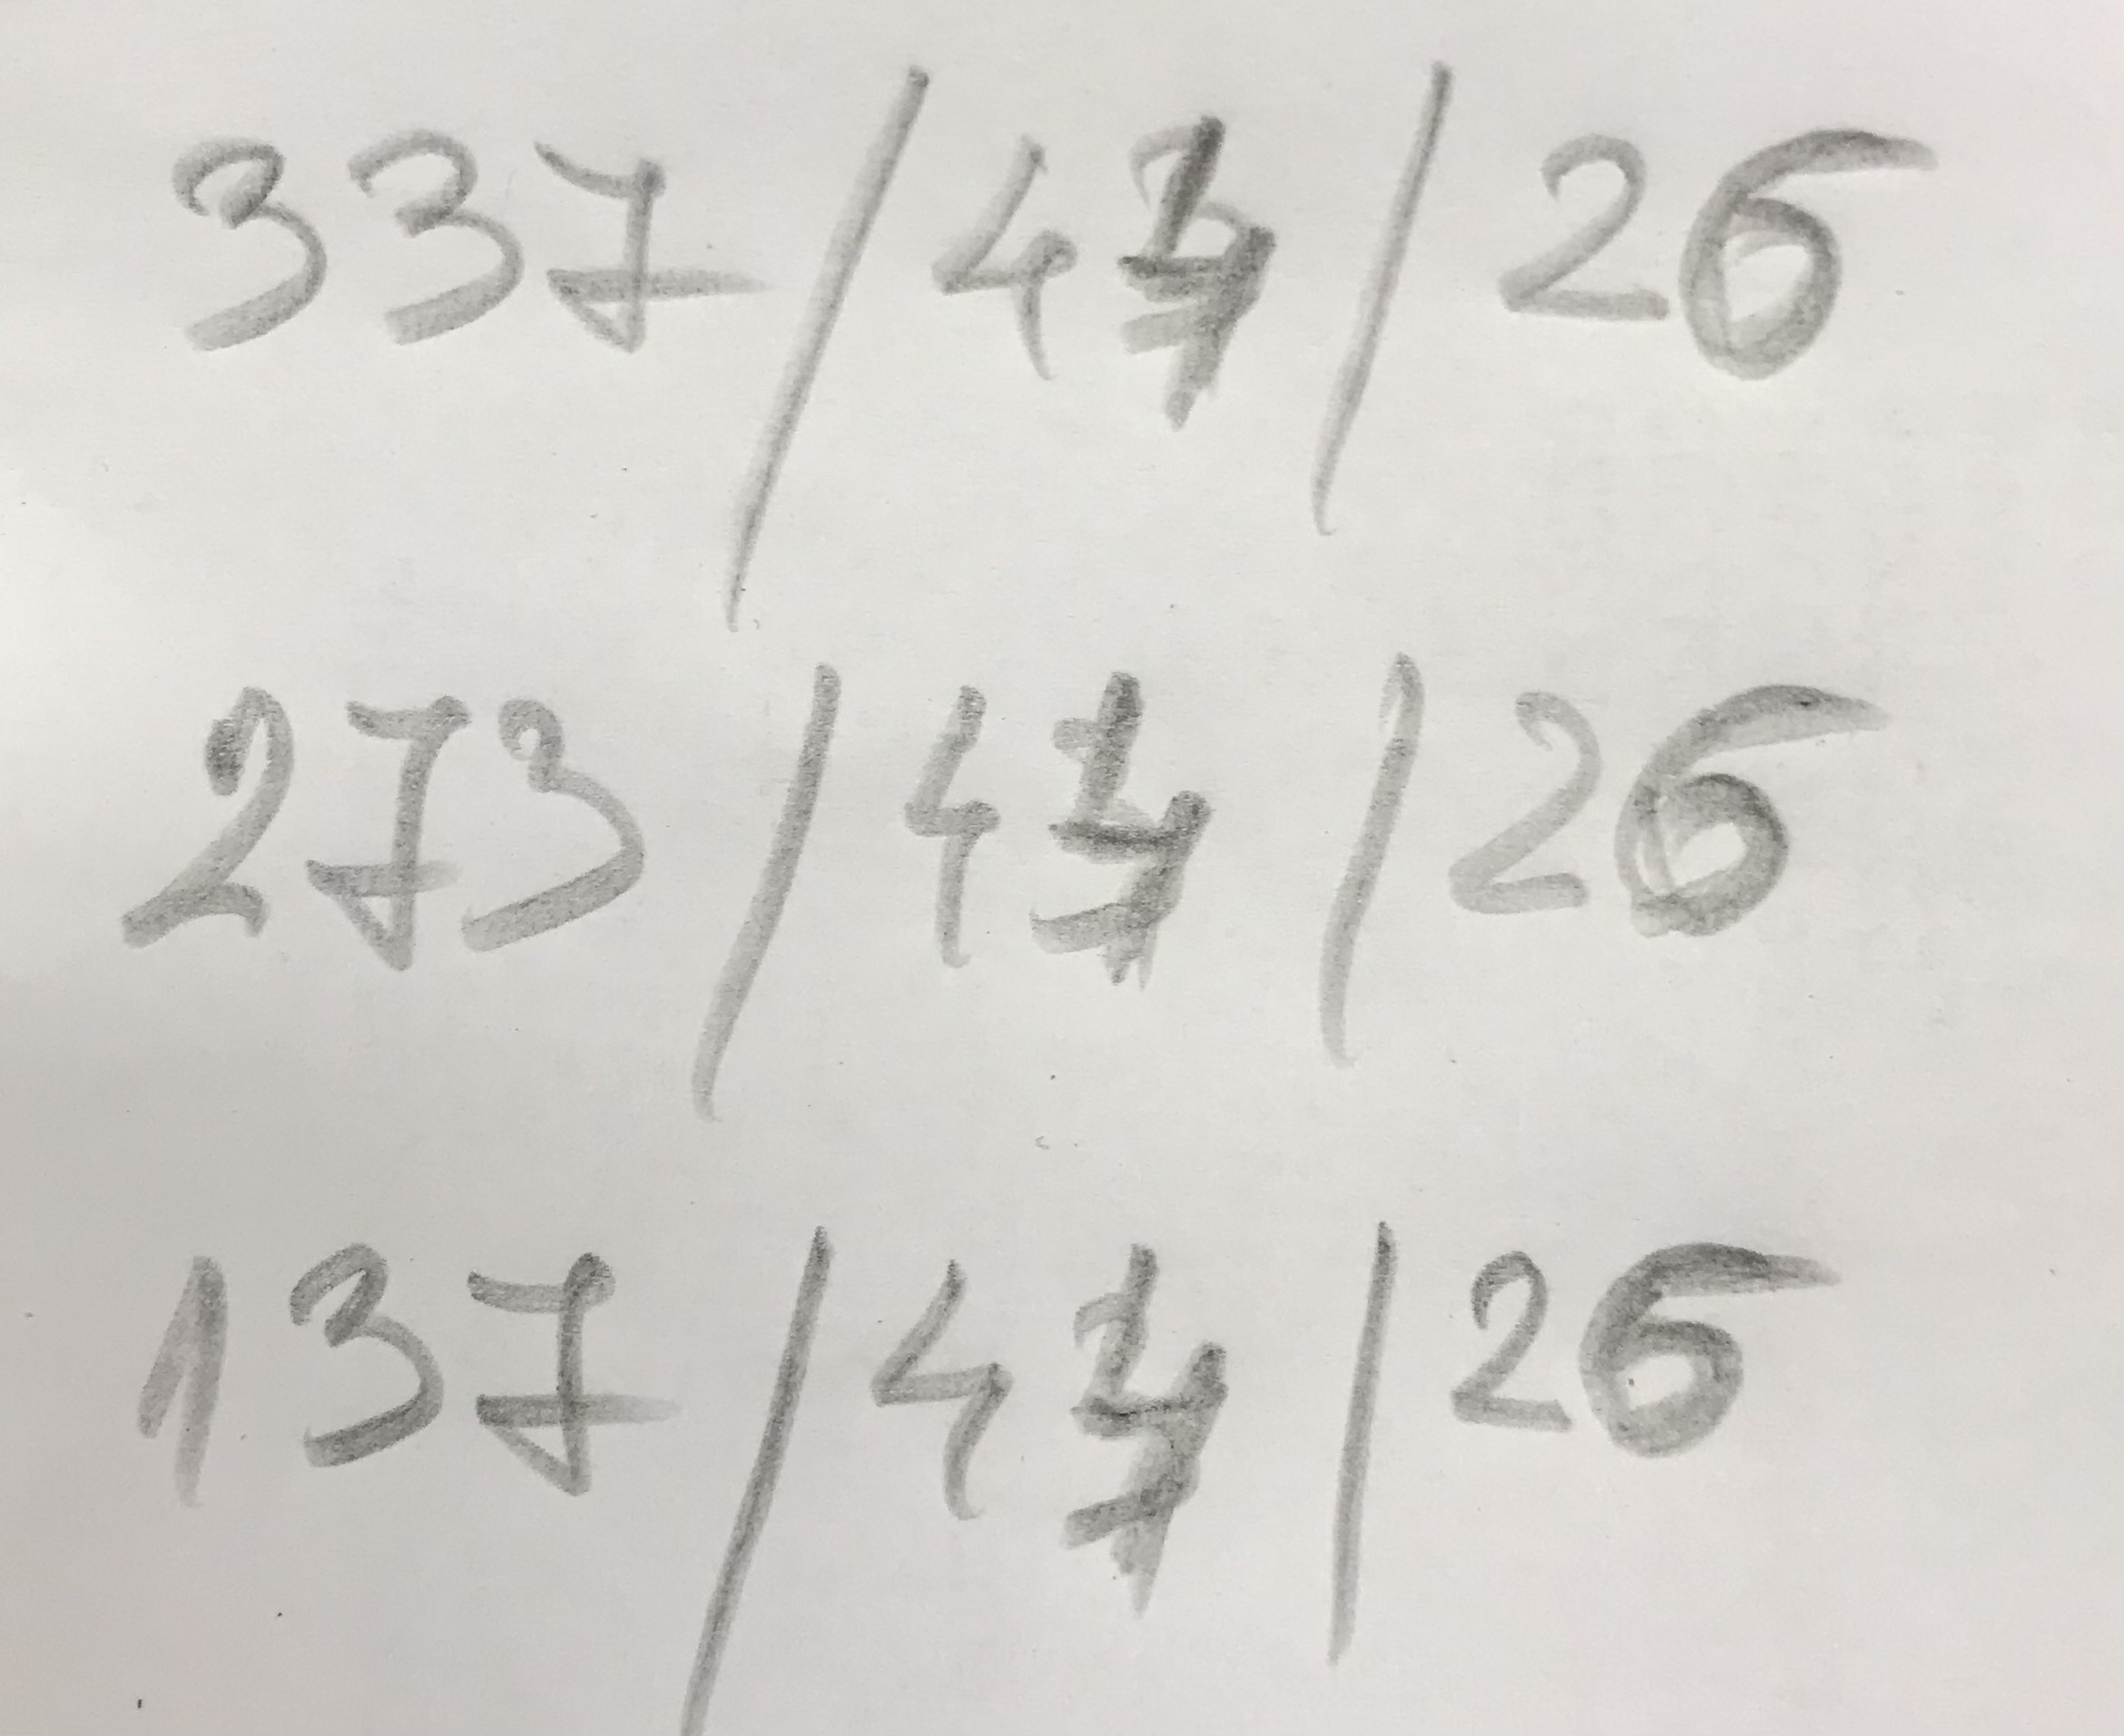 337/44/26
273/44/26
137/44/26